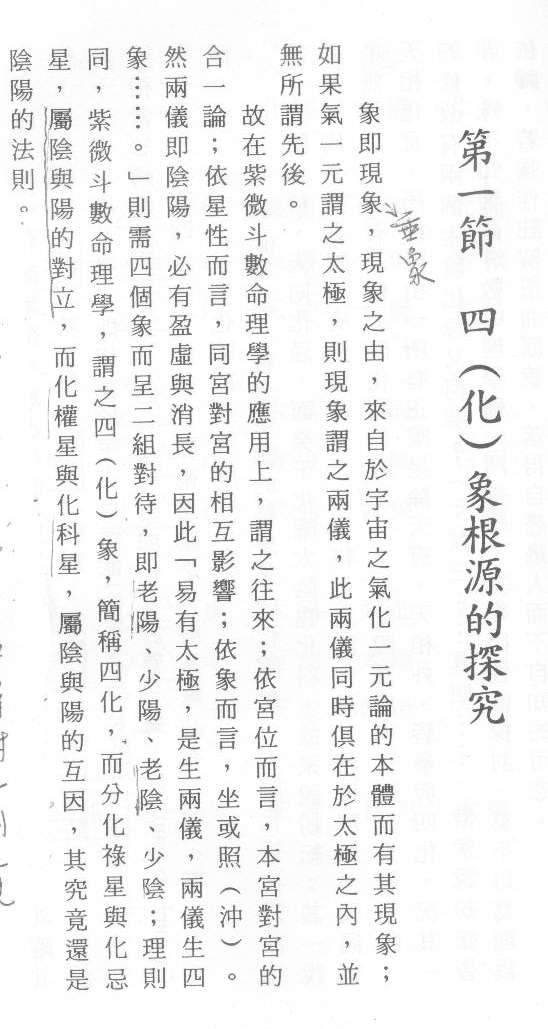 第一節　四（化）象根源的探究
象即現象，現象之由，來自於宇宙之氣化一元論的本體而有其現象；
垂象
如果氣一元謂之太極，則現象謂之兩儀　此兩儀同時俱在於太極之內，並
無所謂先後。
故在紫微斗數命理學的應用上，謂之往來；依宮位而言，本宮對宮的
合一論；依星性而言，同宮對宮的相互影響；依象而言，坐或照（沖）。
然兩儀即陰陽，必有盈虛與消長，因此「易有太極，是生兩儀，兩儀生四
象……。」則需四個象而呈二組對待，即老陽、少陽、老陰、少陰；理則
同，紫微斗數命理學，謂之四（化）象，簡稱四化，而分化祿星與化忌
星，屬陰與陽的對立，而化權星與化科星，屬陰與陽的互因，其究竟還是
陰陽的法則。